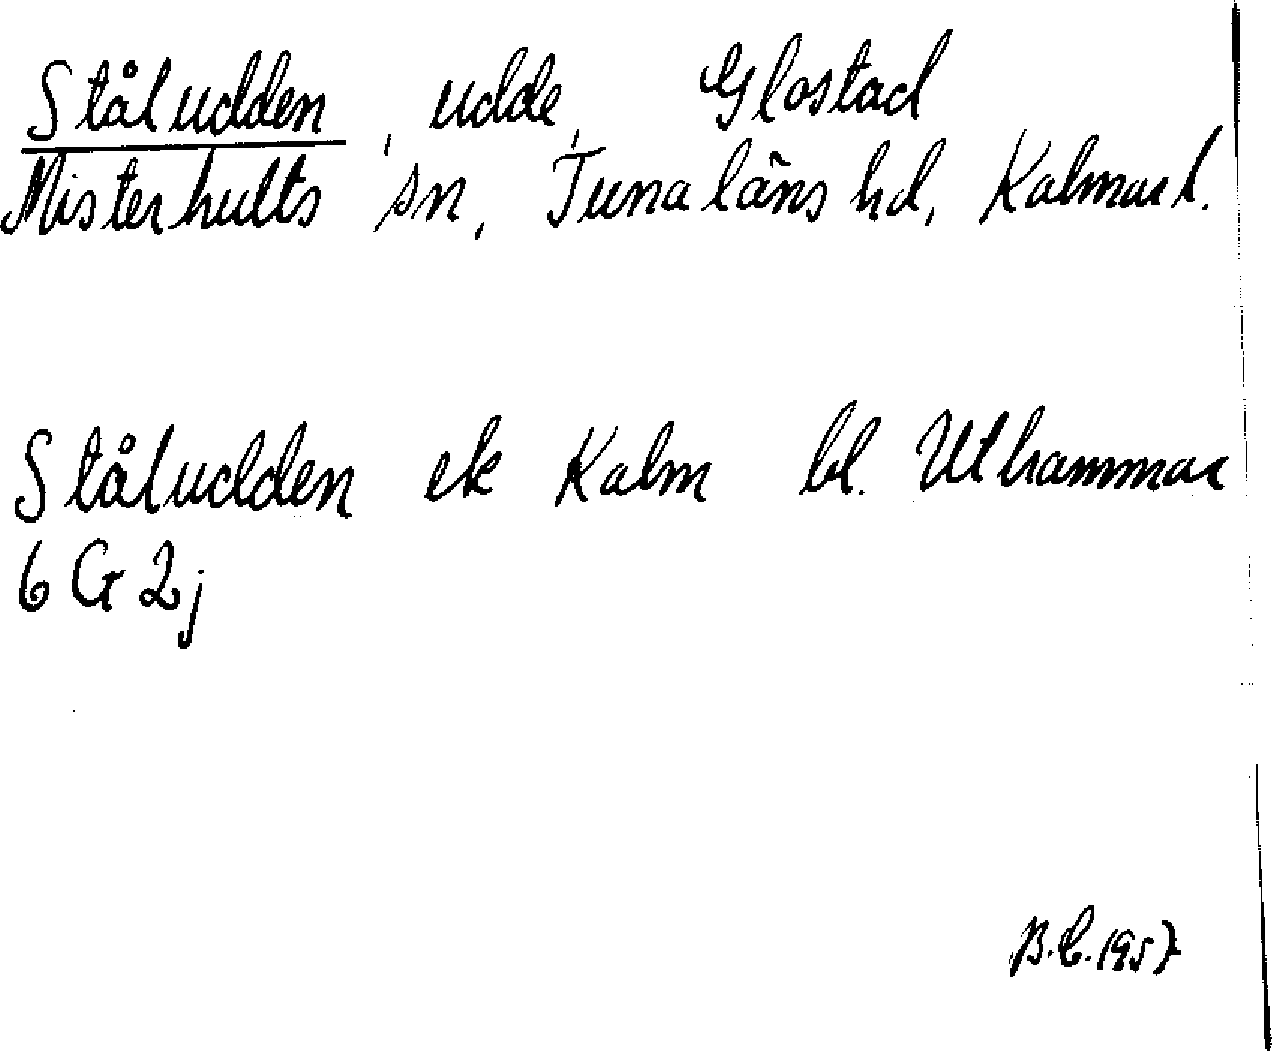 Ståludden, udde, Glostad
Misterhults sn, Tunaläns hd, Kalmar l.
Ståludden ek Kalm bl. Uthammar
6G2j
B.C. 1957